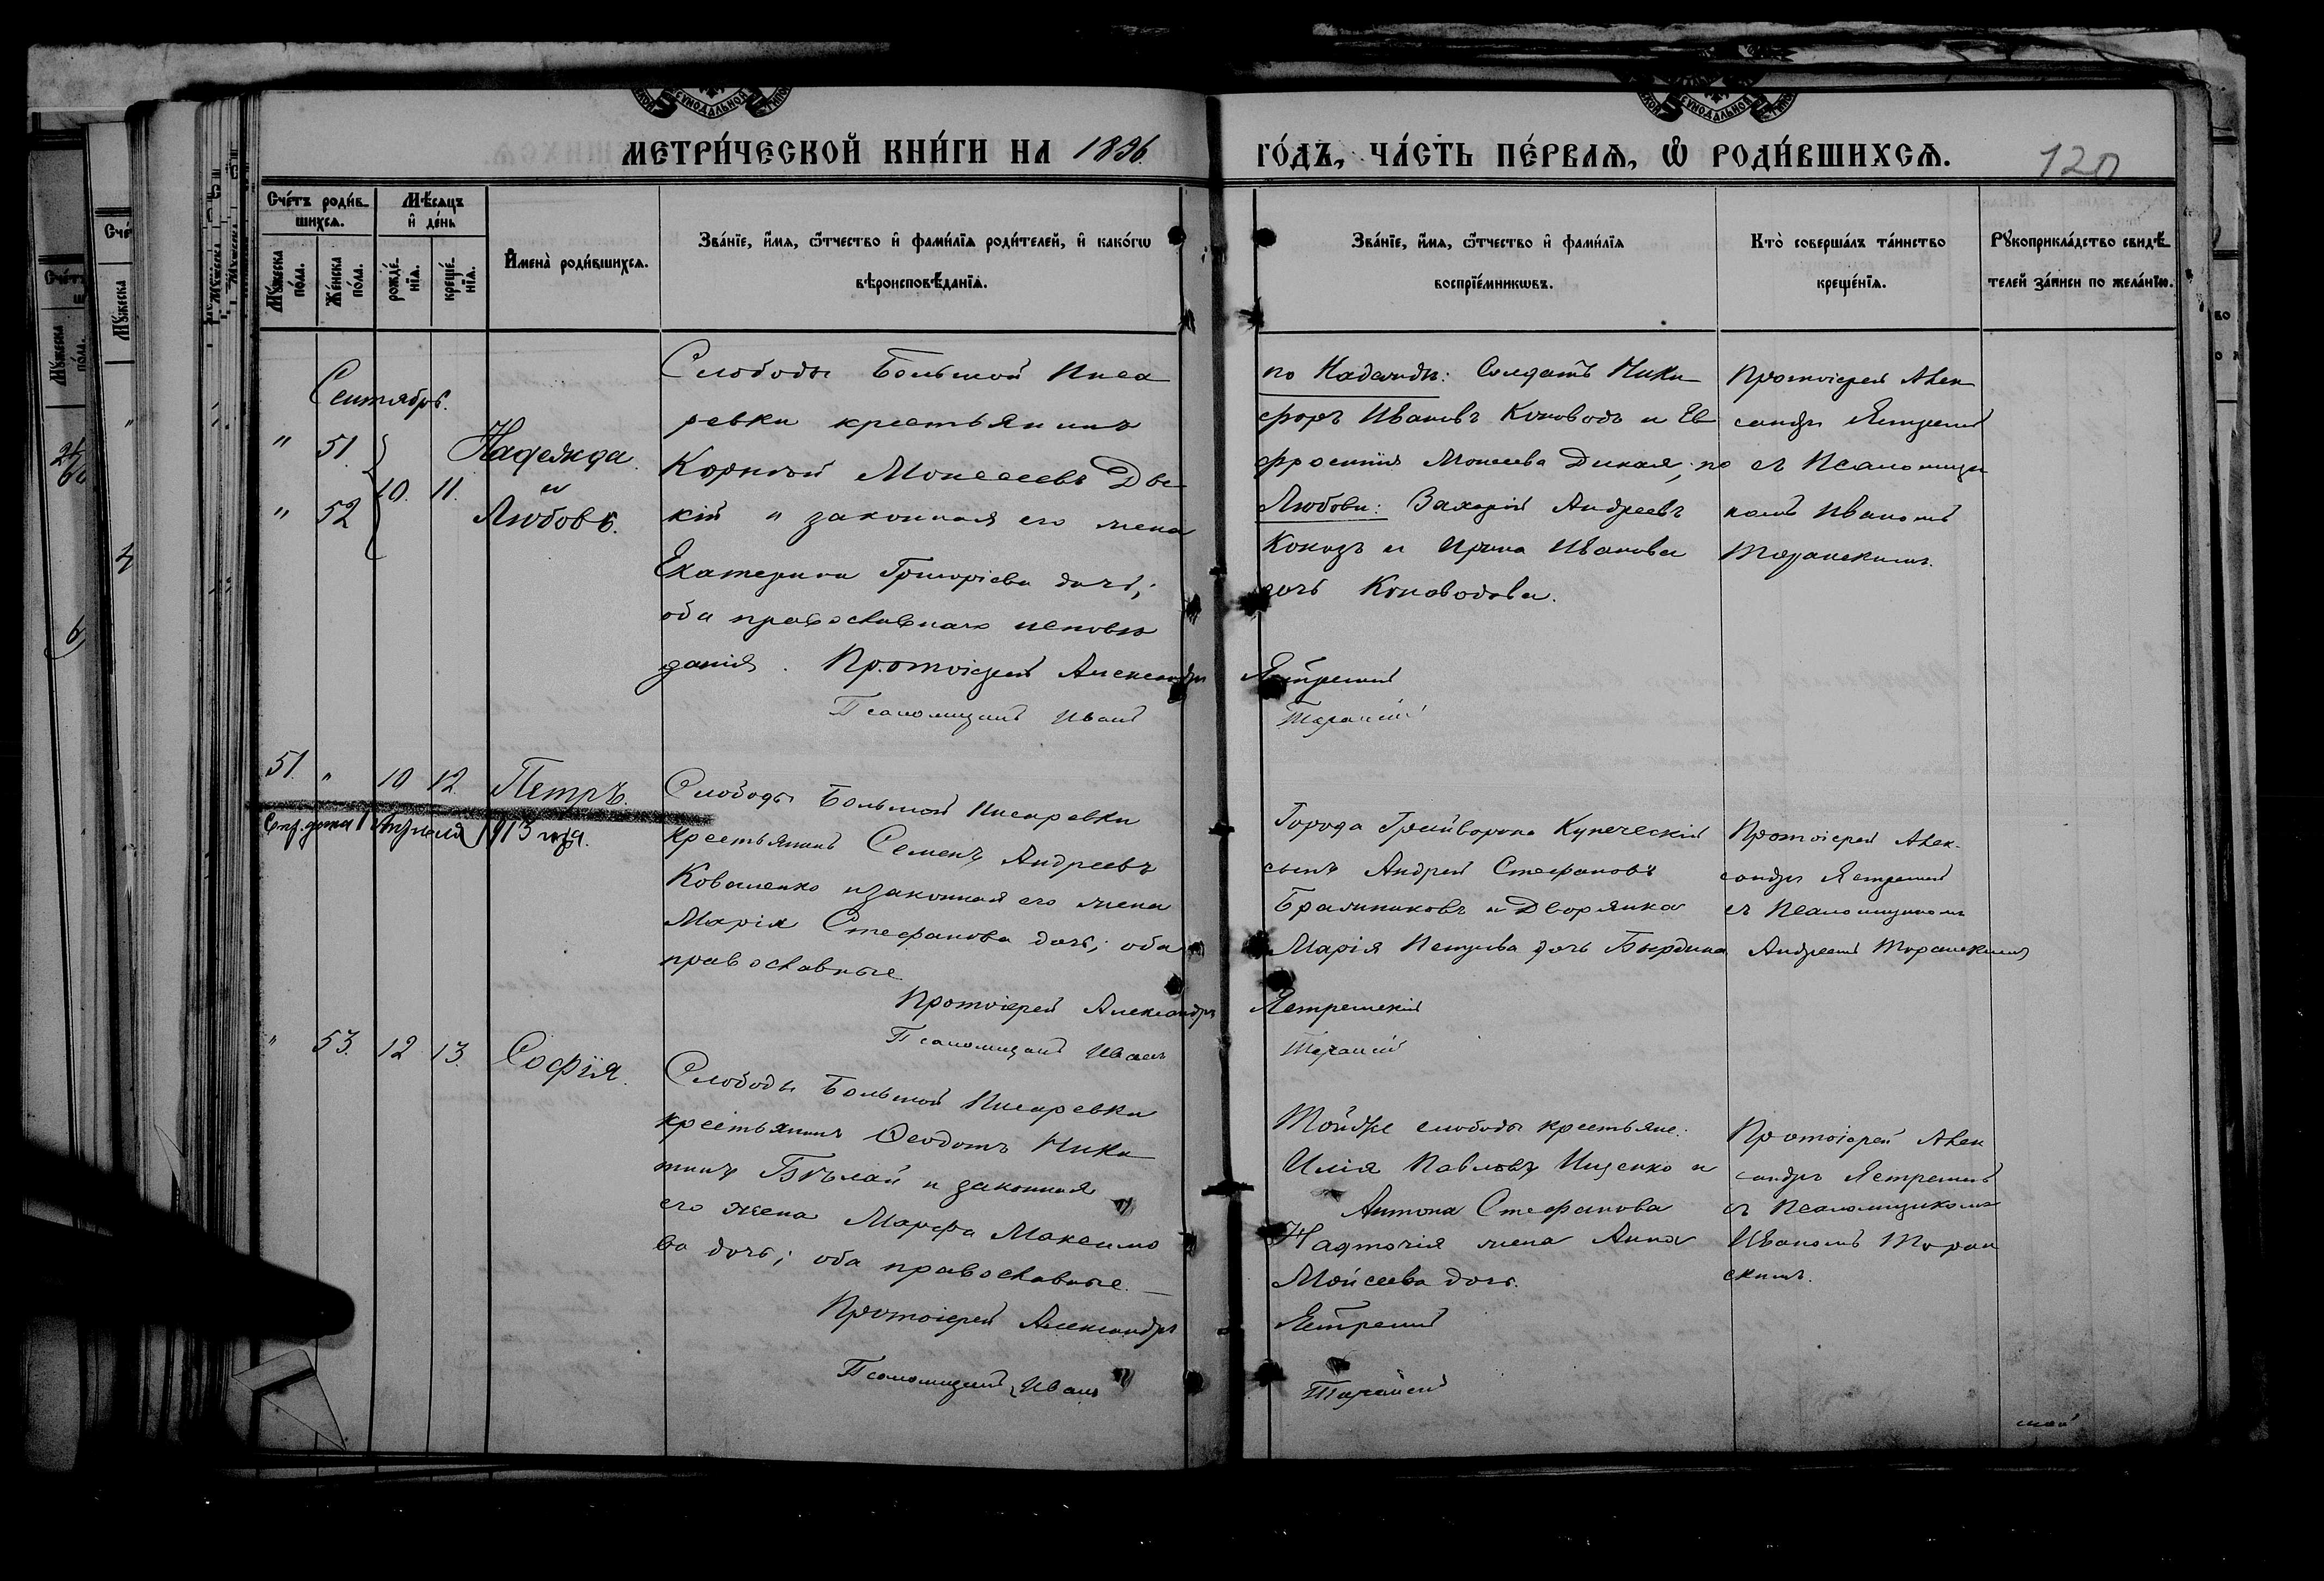 МЕТРИ́ЧЕСКОЙ КНИ́ГИ НА 1896
ГО́ДЪ, ЧА́СТЬ ПЕ́РВАѦ, Ѽ РОДИ́ВШИХСѦ.
120
Сче́тъ роди́в-
шихсѧ.
Мѣ́сѧцъ
и҆ де́нь
Мꙋ́жеска
по́ла.
Же́нска
по́ла.
рожде́-
нїѧ.
креще́-
нїѧ.
И҆мена̀ роди́вшихсѧ.
Зва́нїе, и҆́мѧ, ѻ҆́тчество и҆ фами́лїѧ роди́телей, и҆ како́гѡ
вѣроисповѣ́данїѧ.
Зва́нїе, и҆́мѧ, ѻ҆́тчество и҆ фами́лїѧ
воспрїе́мникѡвъ.
Кто̀ соверша́лъ та́инство
креще́нїѧ.
Рꙋкоприкла́дство свидѣ́-
телей за́писи по жела́нїю.
Сентябрь.
" 51.
" 52
10. 11.
Надежда
и
Любовь.
Слободы Большой Писа
ревки крестьянинъ
Корнилій Моисеевъ
кій и законная его жена
Екатерина Григоріева дочь;
оба православнаго исповѣ
данія. Протоіерей Александръ
Псаломщикъ Иванъ
по Надеждѣ: Солдатъ Ники
форъ Ивановъ Коноводъ и Ев
фросинія Моисеева Дикая; по
Любови: Захарій Андреевъ
и Ирина Иванова
дочь Коноводова.
Протоіерей Алек
сандръ
съ Псаломщи
комъ Иваномъ
51. " 10 12 Петръ.
Апрѣля 1913 года.
Слободы Большой Писаревки
крестьянинъ Семенъ Андреевъ
Коваленко и законная его жена
Марія Стефанова дочь; оба
православные
Протоіерей Александръ
Псаломщикъ Иванъ
Города Грайворона Купеческій
сынъ Андрей Стефановъ
и Дворянка
Марія Петрова дочь
Протоіерей Алек-
сандръ
съ Псаломщикомъ
Андреемъ
" 53. 12 13. Софія.
Слободы Большой Писаревки
крестьянинъ Ѳеодотъ Ники
тинъ Бѣлай и законная
его жена Марѳа Максимо
ва дочь; оба православные.
Протоіерей Александръ
Псаломщикъ Иванъ
Той же слободы крестьяне:
Илія Павловъ Ищенко и
Антона Стефанова
Надточія жена Анна
Моисеева дочь.
Протоіерей Алек
сандръ
съ Псаломщикомъ
Иваномъ